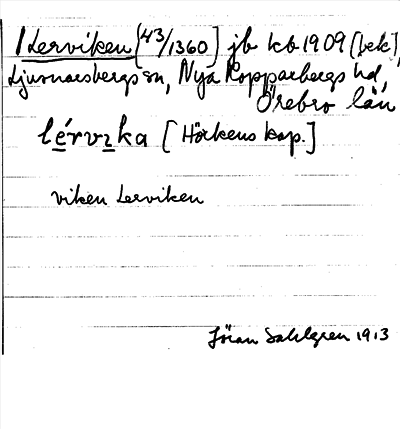 Lerviken [43/1360] jb kb 1909 [bek],
Ljusnarsbergs sn, Nya Kopparbergs hd,
Örebro län
lérvıka [Hörkens kap.]
viken Lerviken
Jöran Sahlgren 1913